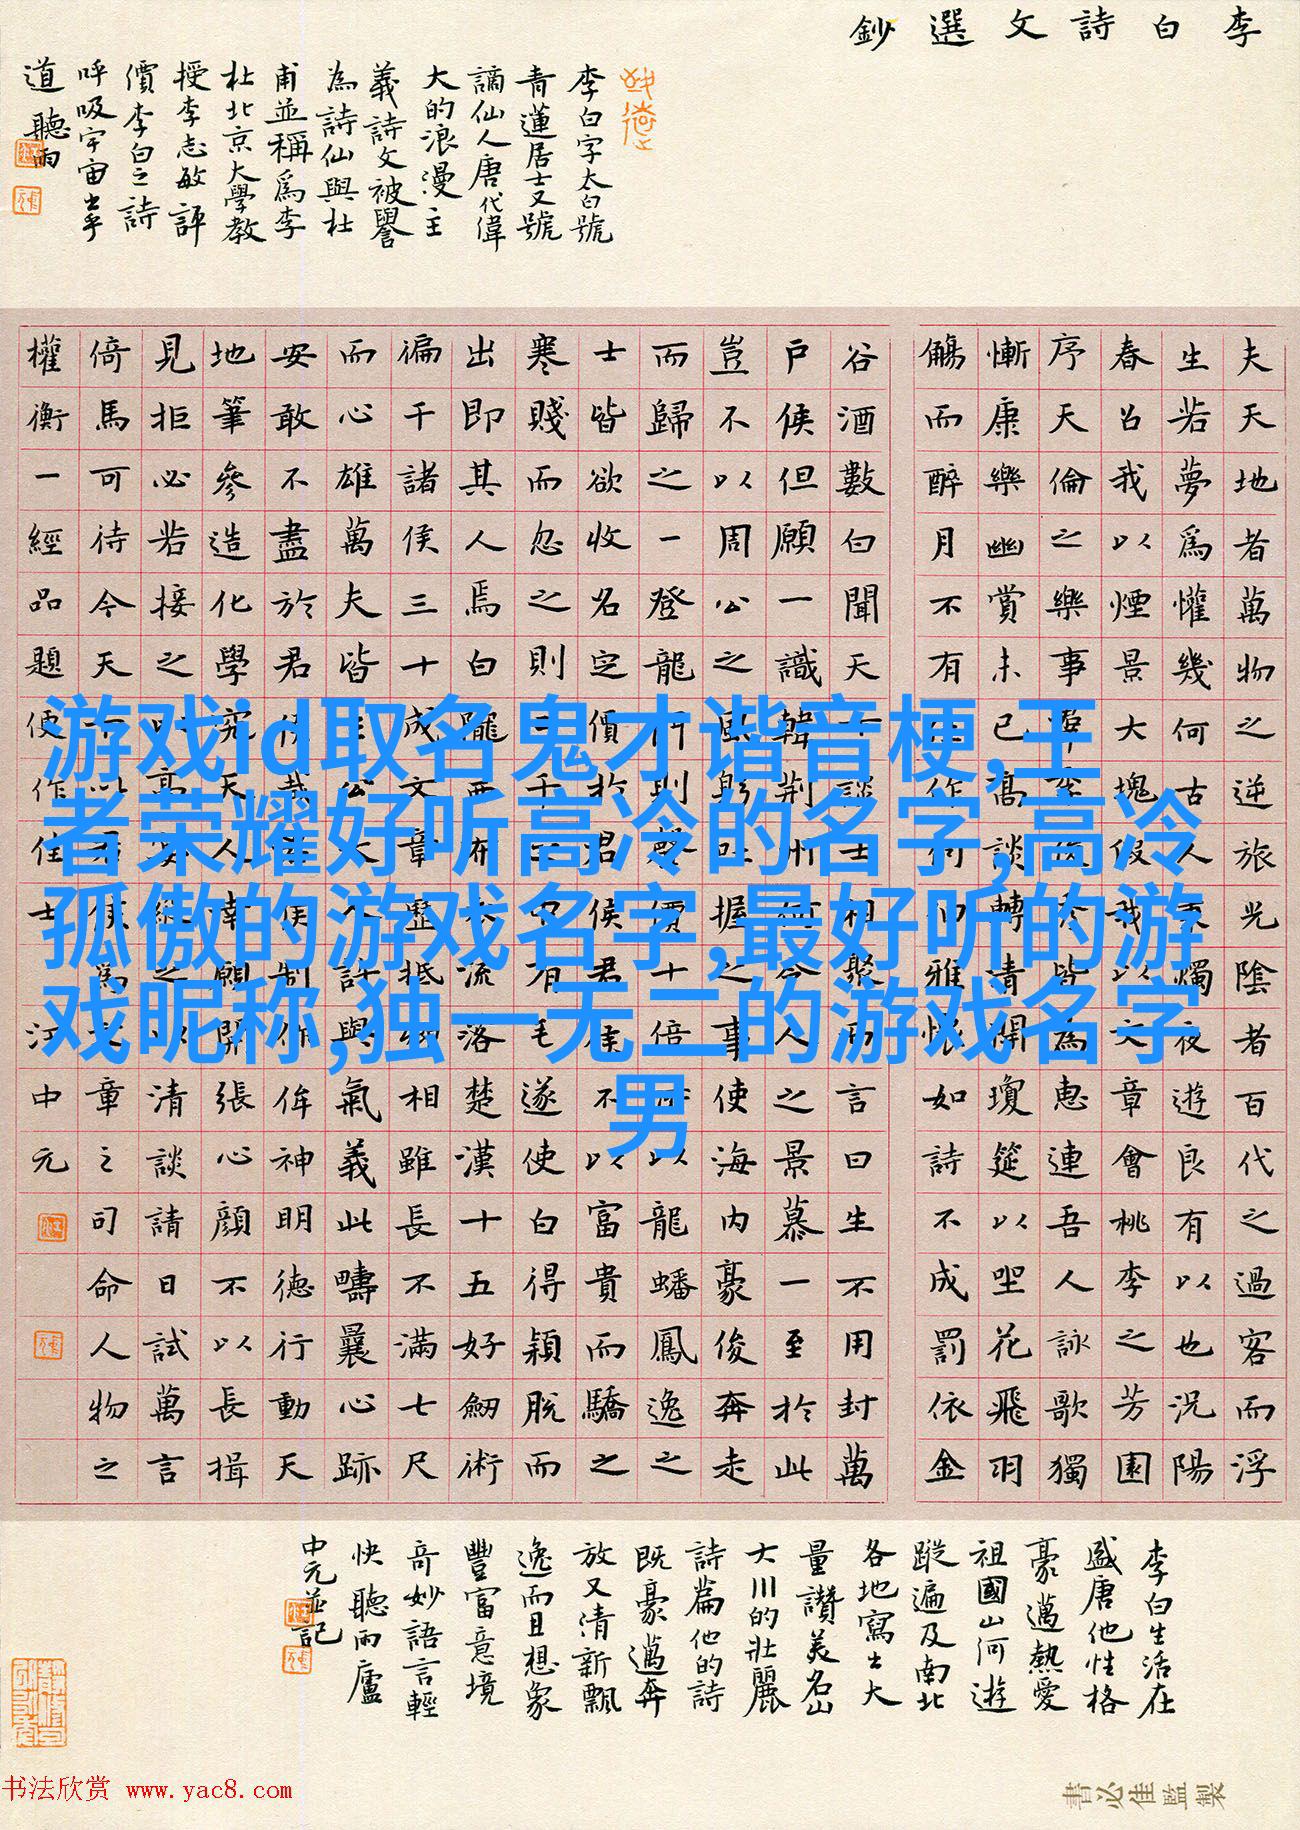 李白詩文選鈔
李白字太白號
青蓮居士又號
謫仙人唐代偉
大的浪漫主
義詩文被譽
為詩仙與杜
甫並稱爲李
杜北京大學教
授李志敏評
價李白之詩
呼吸宇宙出乎
道 聽雨
夫天地者萬物之逆旅光陰者百代之過客而浮
生若夢爲懽幾何古人秉燭夜遊良有以也況陽
春召我以煙景大塊假我以文章會桃李之芳園
序天倫之樂事群季俊秀皆為惠連吾人詠歌獨
慚康樂幽賞未已高談轉清開瓊筵以坐花飛羽
觴而醉月不有佳作何伸雅懷如詩不成罰依金
谷酒數白聞天下談士相聚而言曰生不用封萬
戶侯但願一識韓荊州何令人之景慕一至於此
豈不以周公之風躬吐握之事使海内豪俊奔走
而歸之一登龍門則聲價十倍所以龍蟠鳳逸之
士皆欲收名定價於君侯君侯不以富貴而驕之
寒賤而忽之則三千之中有毛遂使白得穎脫而
出即其人焉白隴西布衣流落楚漢十五好劍術
徧干諸侯三十成文章歷抵卿相雖長不滿七尺
而心雄萬夫皆王公大人許與氣義此疇曩心跡
安敢不盡於君侯哉君侯制作侔神明德行動天
地筆參造化學究天人幸願開張心顏不以長揖
見拒必若接之以高宴縱之以清談請日試萬言
倚馬可待今天下以君侯為文章之司命人物之
權衡一經品題便作佳士 江中元
游戏id取名鬼才谐音梗,王
者荣耀好听高冷的名字,高冷
孤傲的游戏名字,最好听的游
戏昵称,独一无二的游戏名字
男
李白生活在
盛唐他性格
豪邁熱愛
祖國山河遊
蹤遍及南北
各地寫出大
量讚美名山
大川的壯麗
詩篇他的詩
既豪邁奔
放又清新飄
逸而且想象
豐富意境
奇妙語言輕
快 聽雨廬
中元並記
書必佳監製
书法欣赏 www.yac8.com